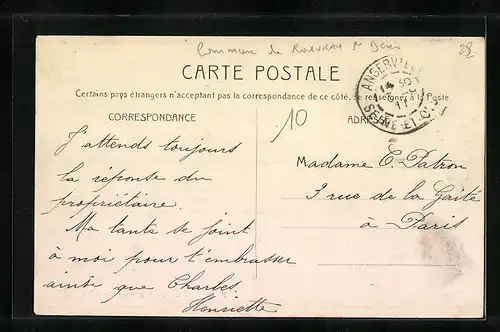 Commune de Rouvray St Denis
28
CARTE POSTALE
Certains pays étrangers n'acceptant pas la correspondance de ce côté, se renseigner à la Poste
CORRESPONDANCE
10
ADRES
ANGERVILLE
SEINE-ET-O
J'attends toujours
la réponse du
propriétaire.
Ma tante se joint
à moi pour t'embrasser
ainsi que Charles.
Henriette
Madame E. Patron
3 rue de la Gaîté
à Paris